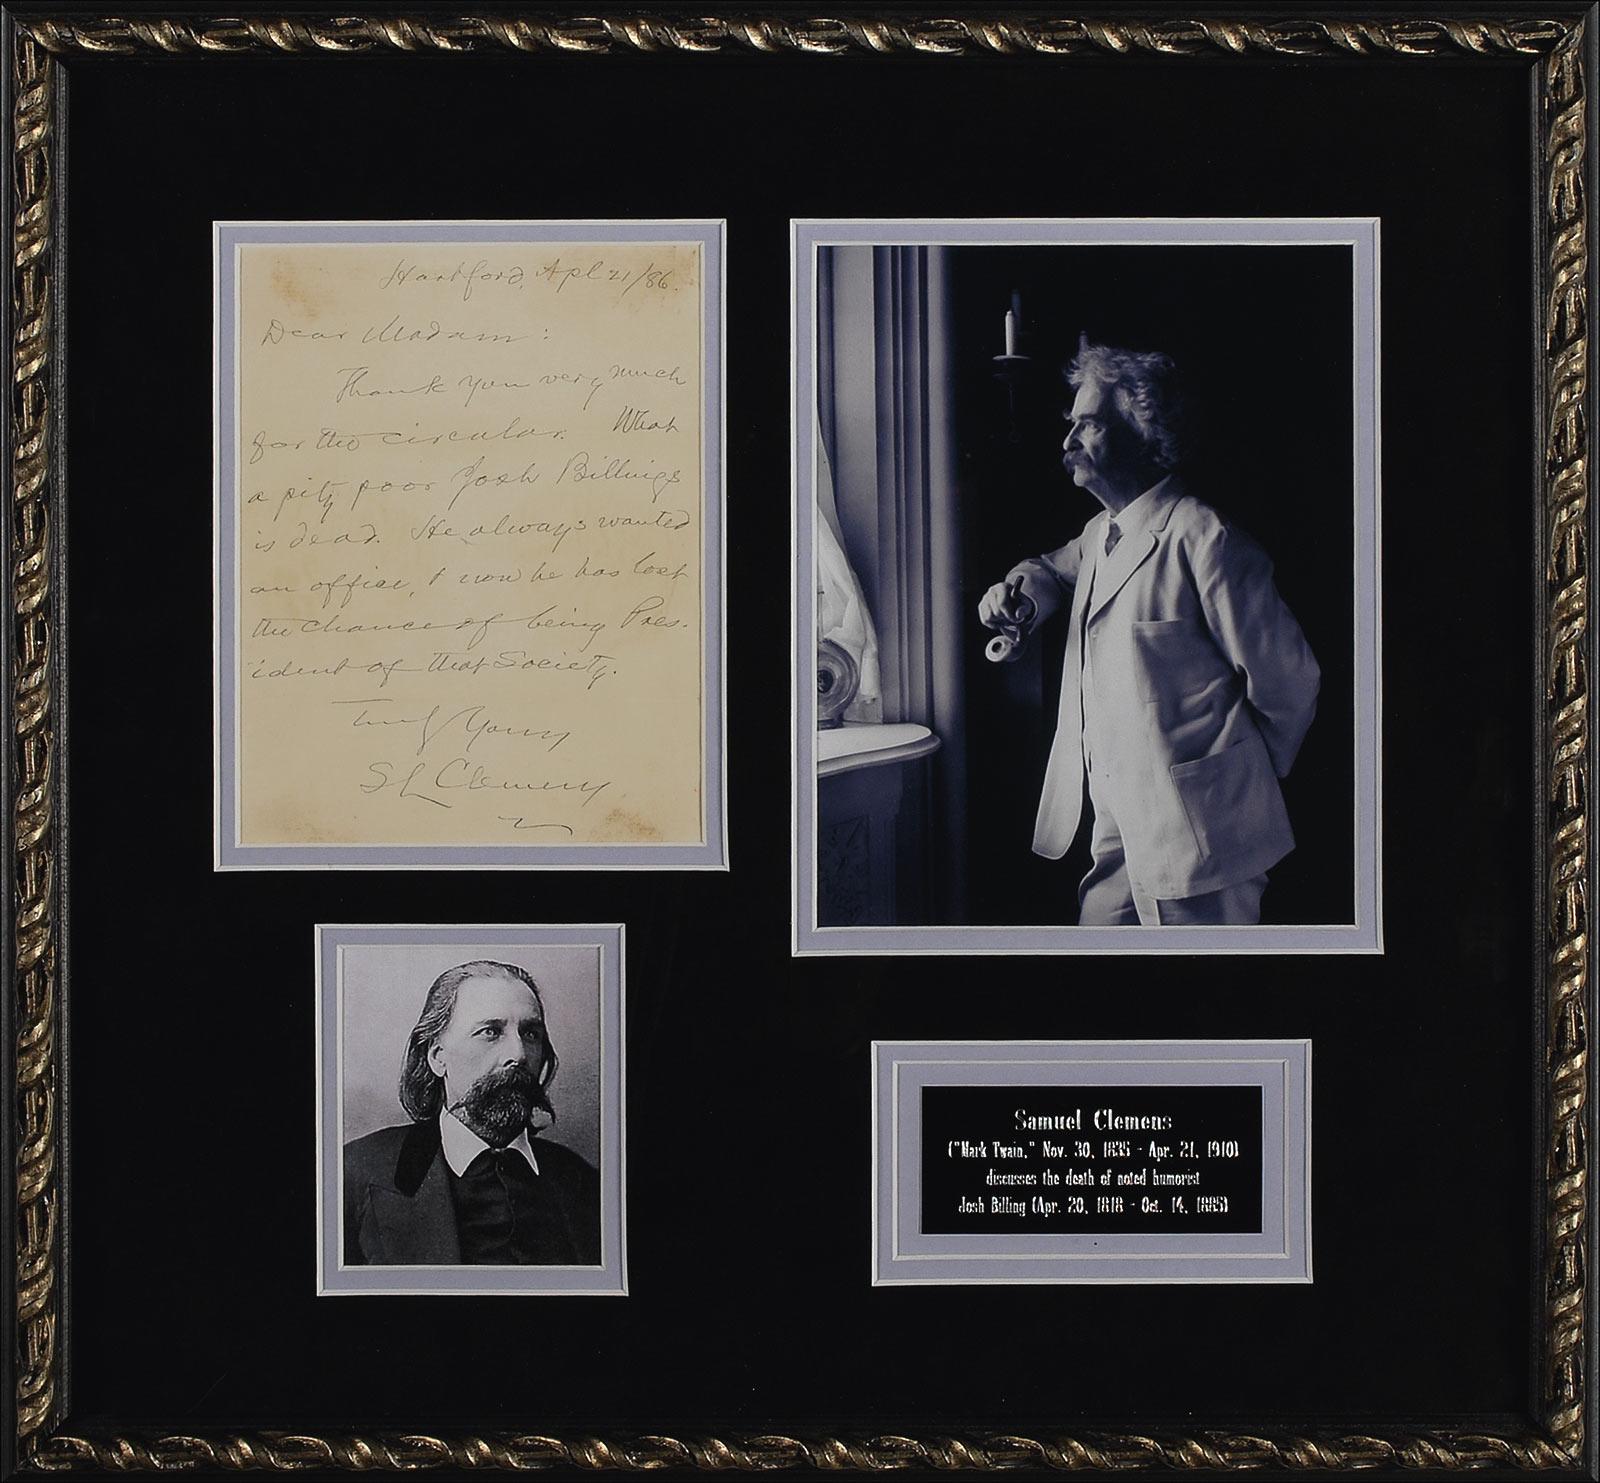 Hartford, Apl 21/86.
Dear Madam:
Thank you very much
for the circular. What
a pity poor Josh Billings
is dead. He always wanted
an office, & now he has lost
the chance of being Pres-
ident of that Society.
Truly Yours
SL Clemens
Samuel Clemens
("Mark Twain," Nov. 30, 1835 - Apr. 21, 1910)
discusses the death of noted humorist
Josh Billing (Apr. 20, 1818 - Oct. 14, 1885)